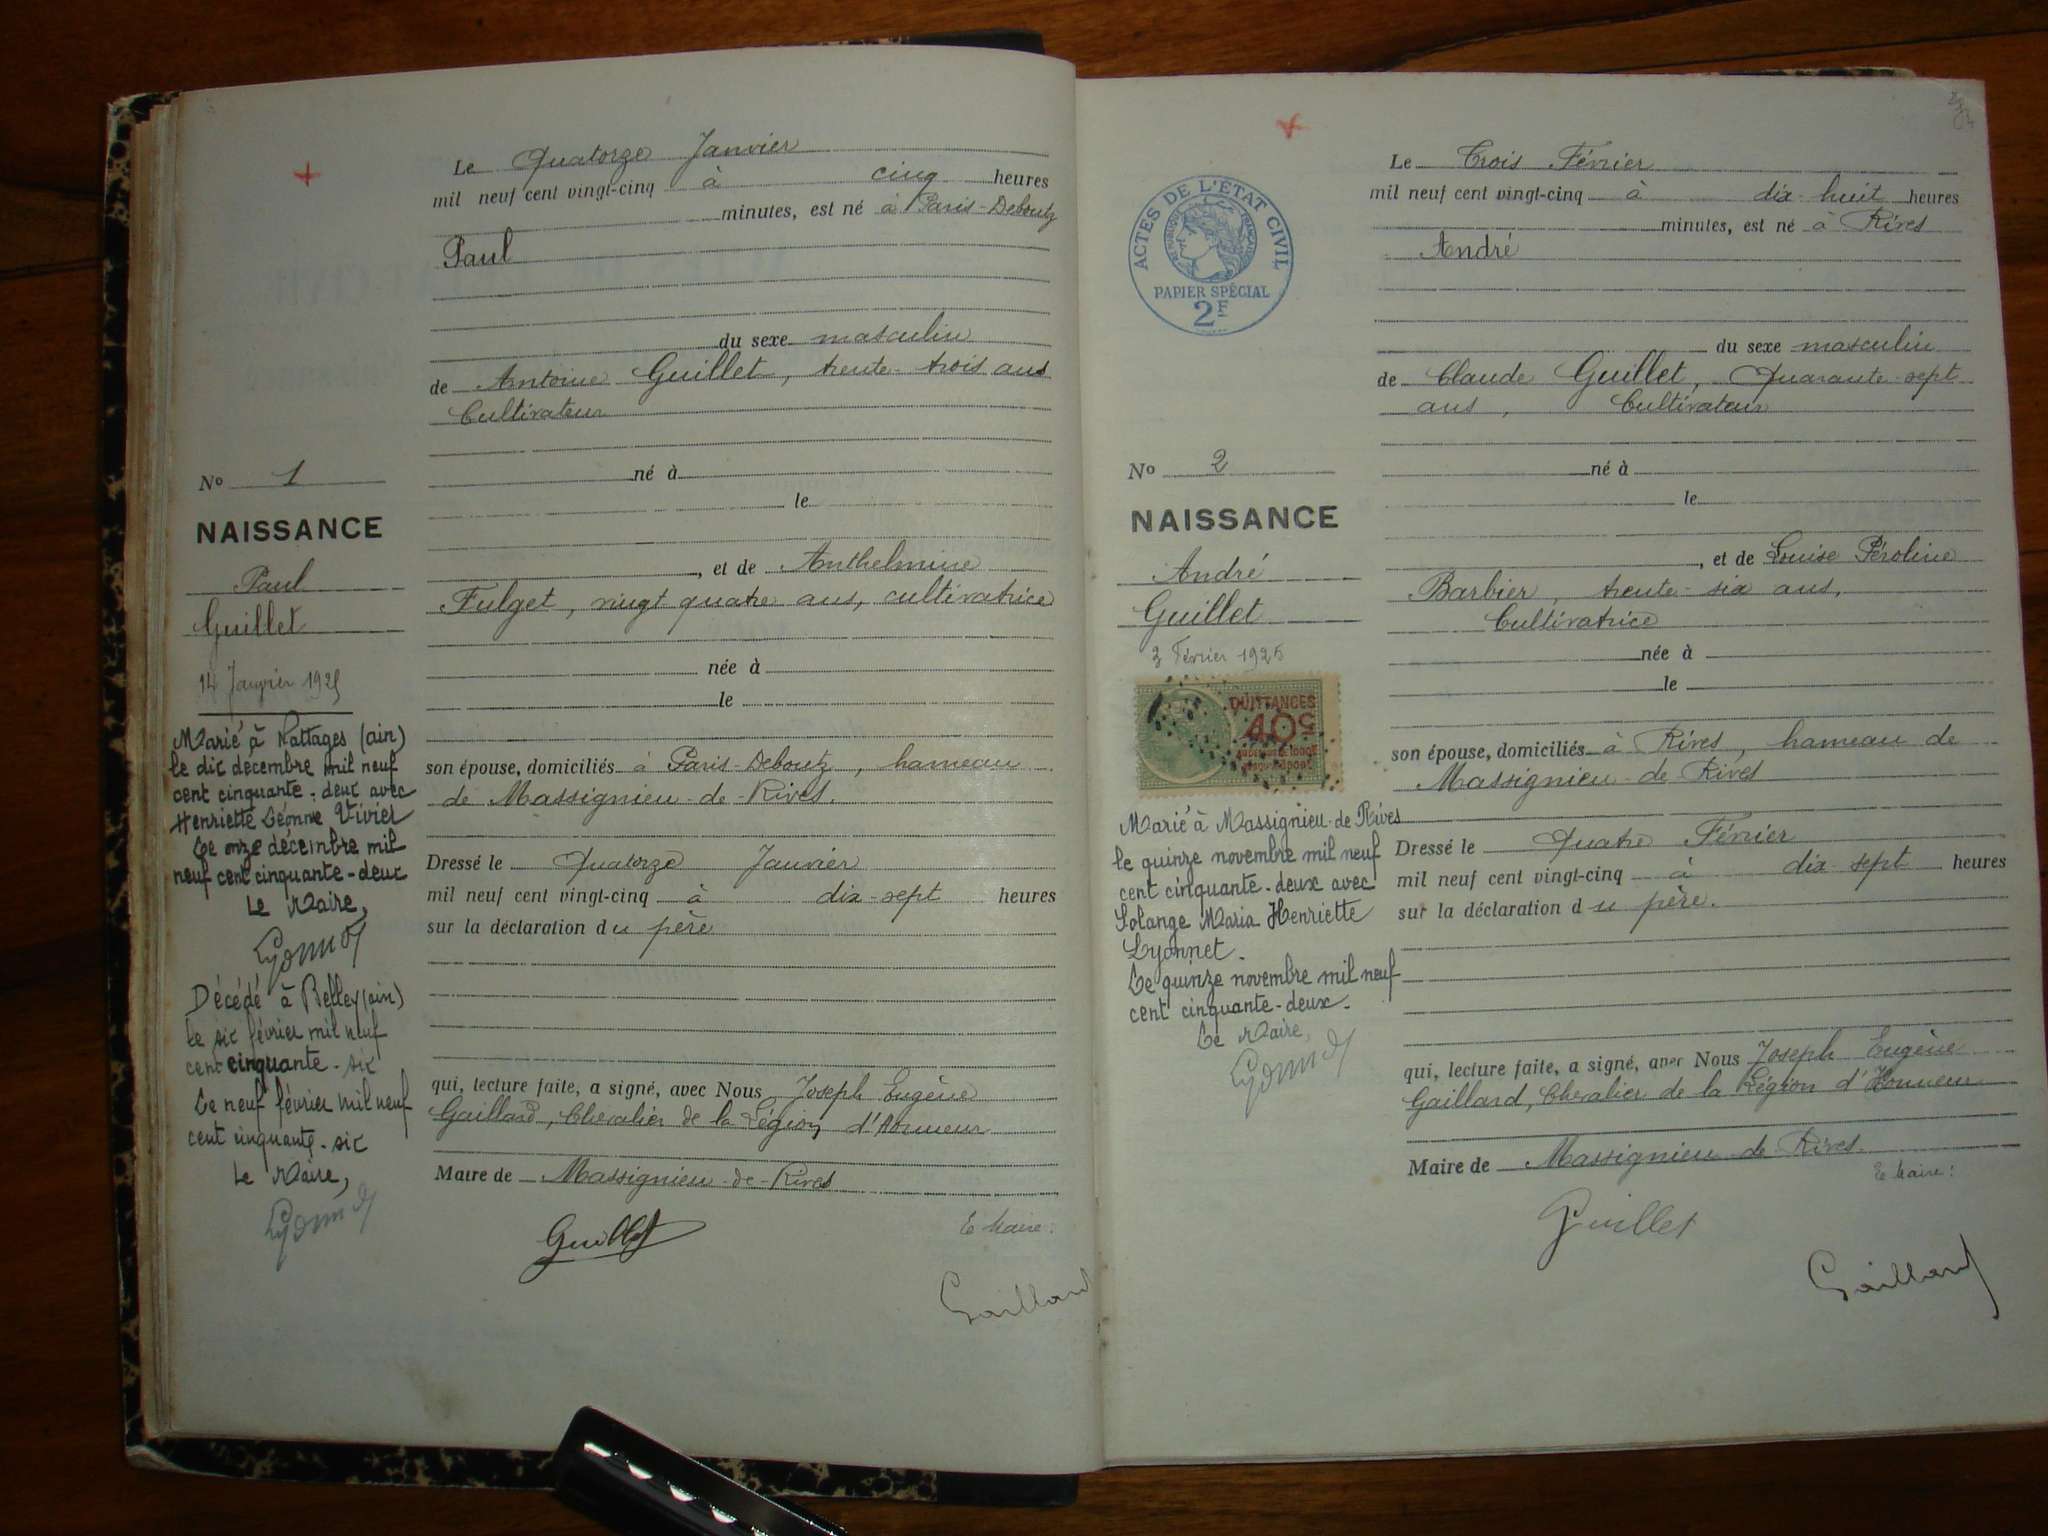 Le Quatorze Janvier
mil neuf cent vingt-cinq à cinq heures
minutes, est né à Paris-Deboutz
Paul
du sexe masculin
de Antoine Guillet, trente-trois ans
Cultivateur
né à
le
, et de Anthelmine
Fulget, vingt-quatre ans, cultivatrice
née à
le
son épouse, domiciliés à Paris-Deboutz, hameau
de Massignieu-de-Rives.
Dressé le Quatorze Janvier
mil neuf cent vingt-cinq à dix-sept heures
sur la déclaration du père
qui, lecture faite, a signé, avec Nous Joseph Eugène
Gaillard, Chevalier de la Légion d'Honneur
Maire de Massignieu-de-Rives
Le Maire:
Guillet
Gaillard
No 1
NAISSANCE
Paul
Guillet
14 Janvier 1925
Marié à Nattages (ain)
le dix décembre mil neuf
cent cinquante-deux avec
Henriette Léonne Vivier
Le onze décembre mil
neuf cent cinquante-deux
Le Maire,
Décédé à Belley (ain)
le six février mil neuf
cent cinquante-six
Le neuf février mil neuf
cent cinquante-six
Le Maire,
Le Trois Février
mil neuf cent vingt-cinq à dix-huit heures
minutes, est né à Rives
André
du sexe masculin
de Claude Guillet, Quarante-sept
ans, Cultivateur
né à
le
, et de Louise Péroline
Barbier, trente-six ans,
Cultivatrice
née à
le
son épouse, domiciliés à Rives, hameau de
Massignieu-de-Rives
Dressé le Quatre Février
mil neuf cent vingt-cinq à dix-sept heures
sur la déclaration du père.
qui, lecture faite, a signé, avec Nous Joseph Eugène
Gaillard, Chevalier de la Légion d'Honneur
Maire de Massignieu-de-Rives.
Le Maire:
Guillet
Gaillard
ACTES DE L'ÉTAT CIVIL
RÉPUBLIQUE FRANÇAISE
PAPIER SPÉCIAL
2F
No 2
NAISSANCE
André
Guillet
3 Février 1925
QUITTANCES
40c
Marié à Massignieu-de-Rives
le quinze novembre mil neuf
cent cinquante-deux avec
Solange Maria Henriette
Lyonnet.
Le quinze novembre mil neuf
cent cinquante-deux.
Le Maire,